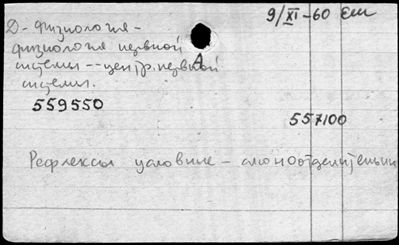 Д - физиология -
9/XI-60 Ем
физиология нервной
системы -- центр. нервной
А
системы.
559550
557100
Рефлексы условные - слюноотделительные